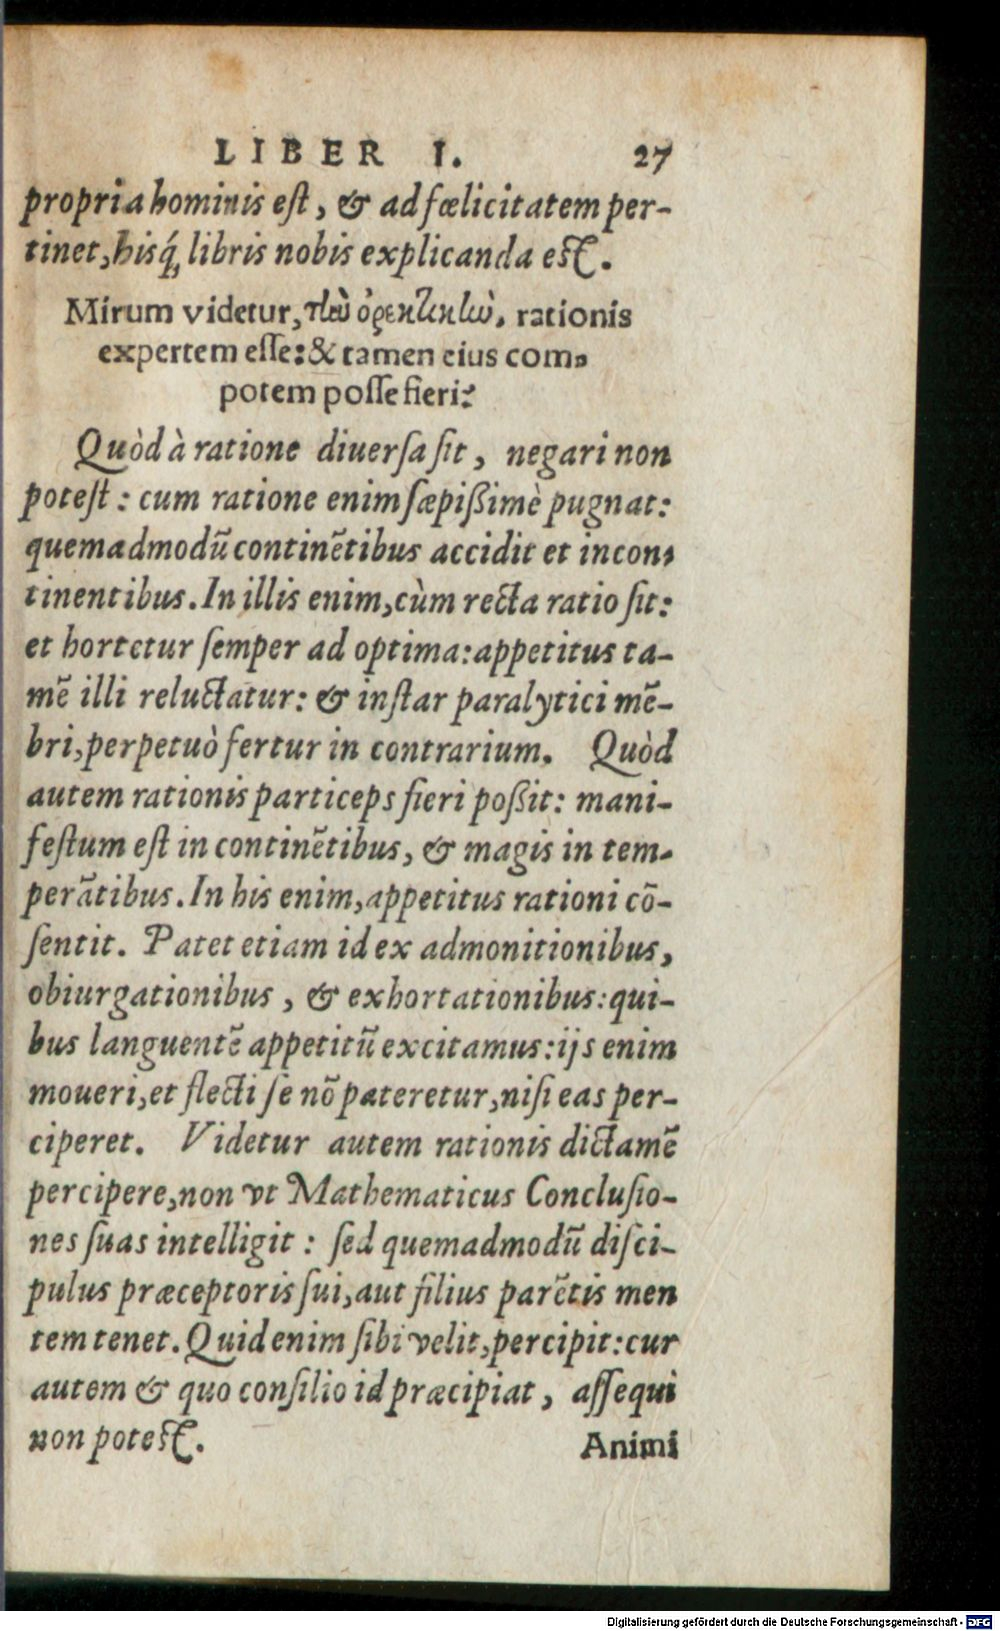 LIBER I. 27
propria hominis est, & ad fœlicitatem per-
tinet, hisq́; libris nobis explicanda est.
Mirum videtur, τὴν ὀρεκτικὴν, rationis
expertem esse: & tamen eius com-
potem posse fieri?
Quòd à ratione diuersa sit, negari non
potest: cum ratione enim sæpißimè pugnat:
quemadmodū continētibus accidit et incon-
tinentibus. In illis enim, cùm recta ratio sit:
et hortetur semper ad optima: appetitus ta-
mē illi reluctatur: & instar paralytici mē-
bri, perpetuò fertur in contrarium. Quòd
autem rationis particeps fieri poßit: mani-
festum est in continētibus, & magis in tem-
perātibus. In his enim, appetitus rationi cō-
sentit. Patet etiam id ex admonitionibus,
obiurgationibus, & exhortationibus: qui-
bus languentē appetitū excitamus: ijs enim
moueri, et flecti se nō pateretur, nisi eas per-
ciperet. Videtur autem rationis dictamē
percipere, non vt Mathematicus Conclusio-
nes suas intelligit: sed quemadmodū disci-
pulus præceptoris sui, aut filius parētis men
tem tenet. Quid enim sibi velit, percipit: cur
autem & quo consilio id præcipiat, assequi
non potest. Animi
Digitalisierung gefördert durch die Deutsche Forschungsgemeinschaft - DFG